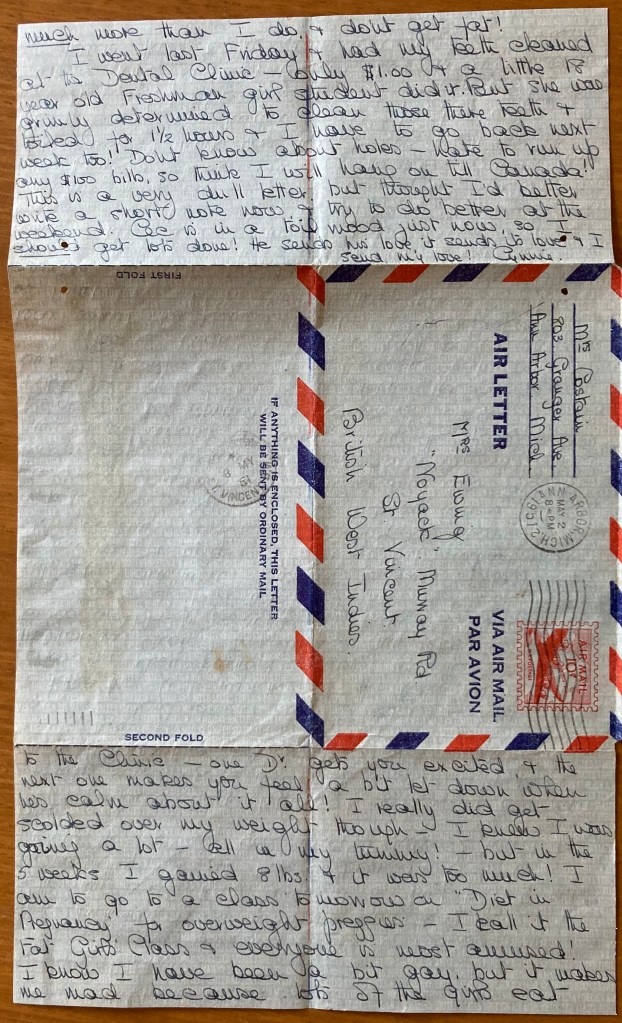 much more than I do, & dont get fat!
I went last Friday & had my teeth cleaned
at the Dental Clinic – only $1.00 & a little 18
year old Freshman girl student did it. But she was
grimly determined to clean those there teeth &
toiled for 1½ hours & I have to go back next
week too! Dont know about holes – hate to run up
any $100 bills, so think I will hang on till Canada!
This is a very dull letter, but thought I'd better
write a short note now & try to do better at the
weekend. is in a foul mood just now, so I
should get lots done! He sends his love, it sends its love & I
send my love! Ginnie.
FIRST FOLD
Mrs Costain
803 Granger Ave
Ann Arbor Mich
AIR LETTER
ANN ARBOR, MICH.
MAY 2
8 PM
VIA AIR MAIL
PAR AVION
AIR MAIL
10¢
Mrs Ewing
"Noyack" Murray Rd.
St Vincent
British West Indies.
IF ANYTHING IS ENCLOSED, THIS LETTER
WILL BE SENT BY ORDINARY MAIL
8 MY
61
ST. VINCENT
SECOND FOLD
to the Clinic – one Dr. gets you excited, & the
next one makes you feel a bit let down when
hes calm about it all! I really did get
scolded over my weight though – I knew I was
gaining a lot – all in my tummy! – but in the
5 weeks I gained 8 lbs. & it was too much! I
am to go to a class tomorrow on "Diet in
Pregnancy" for overweight preggies – I call it the
Fat Girls Class & everyone is most amused!
I know I have been a bit gay, but it makes
me mad because lots of the girls eat